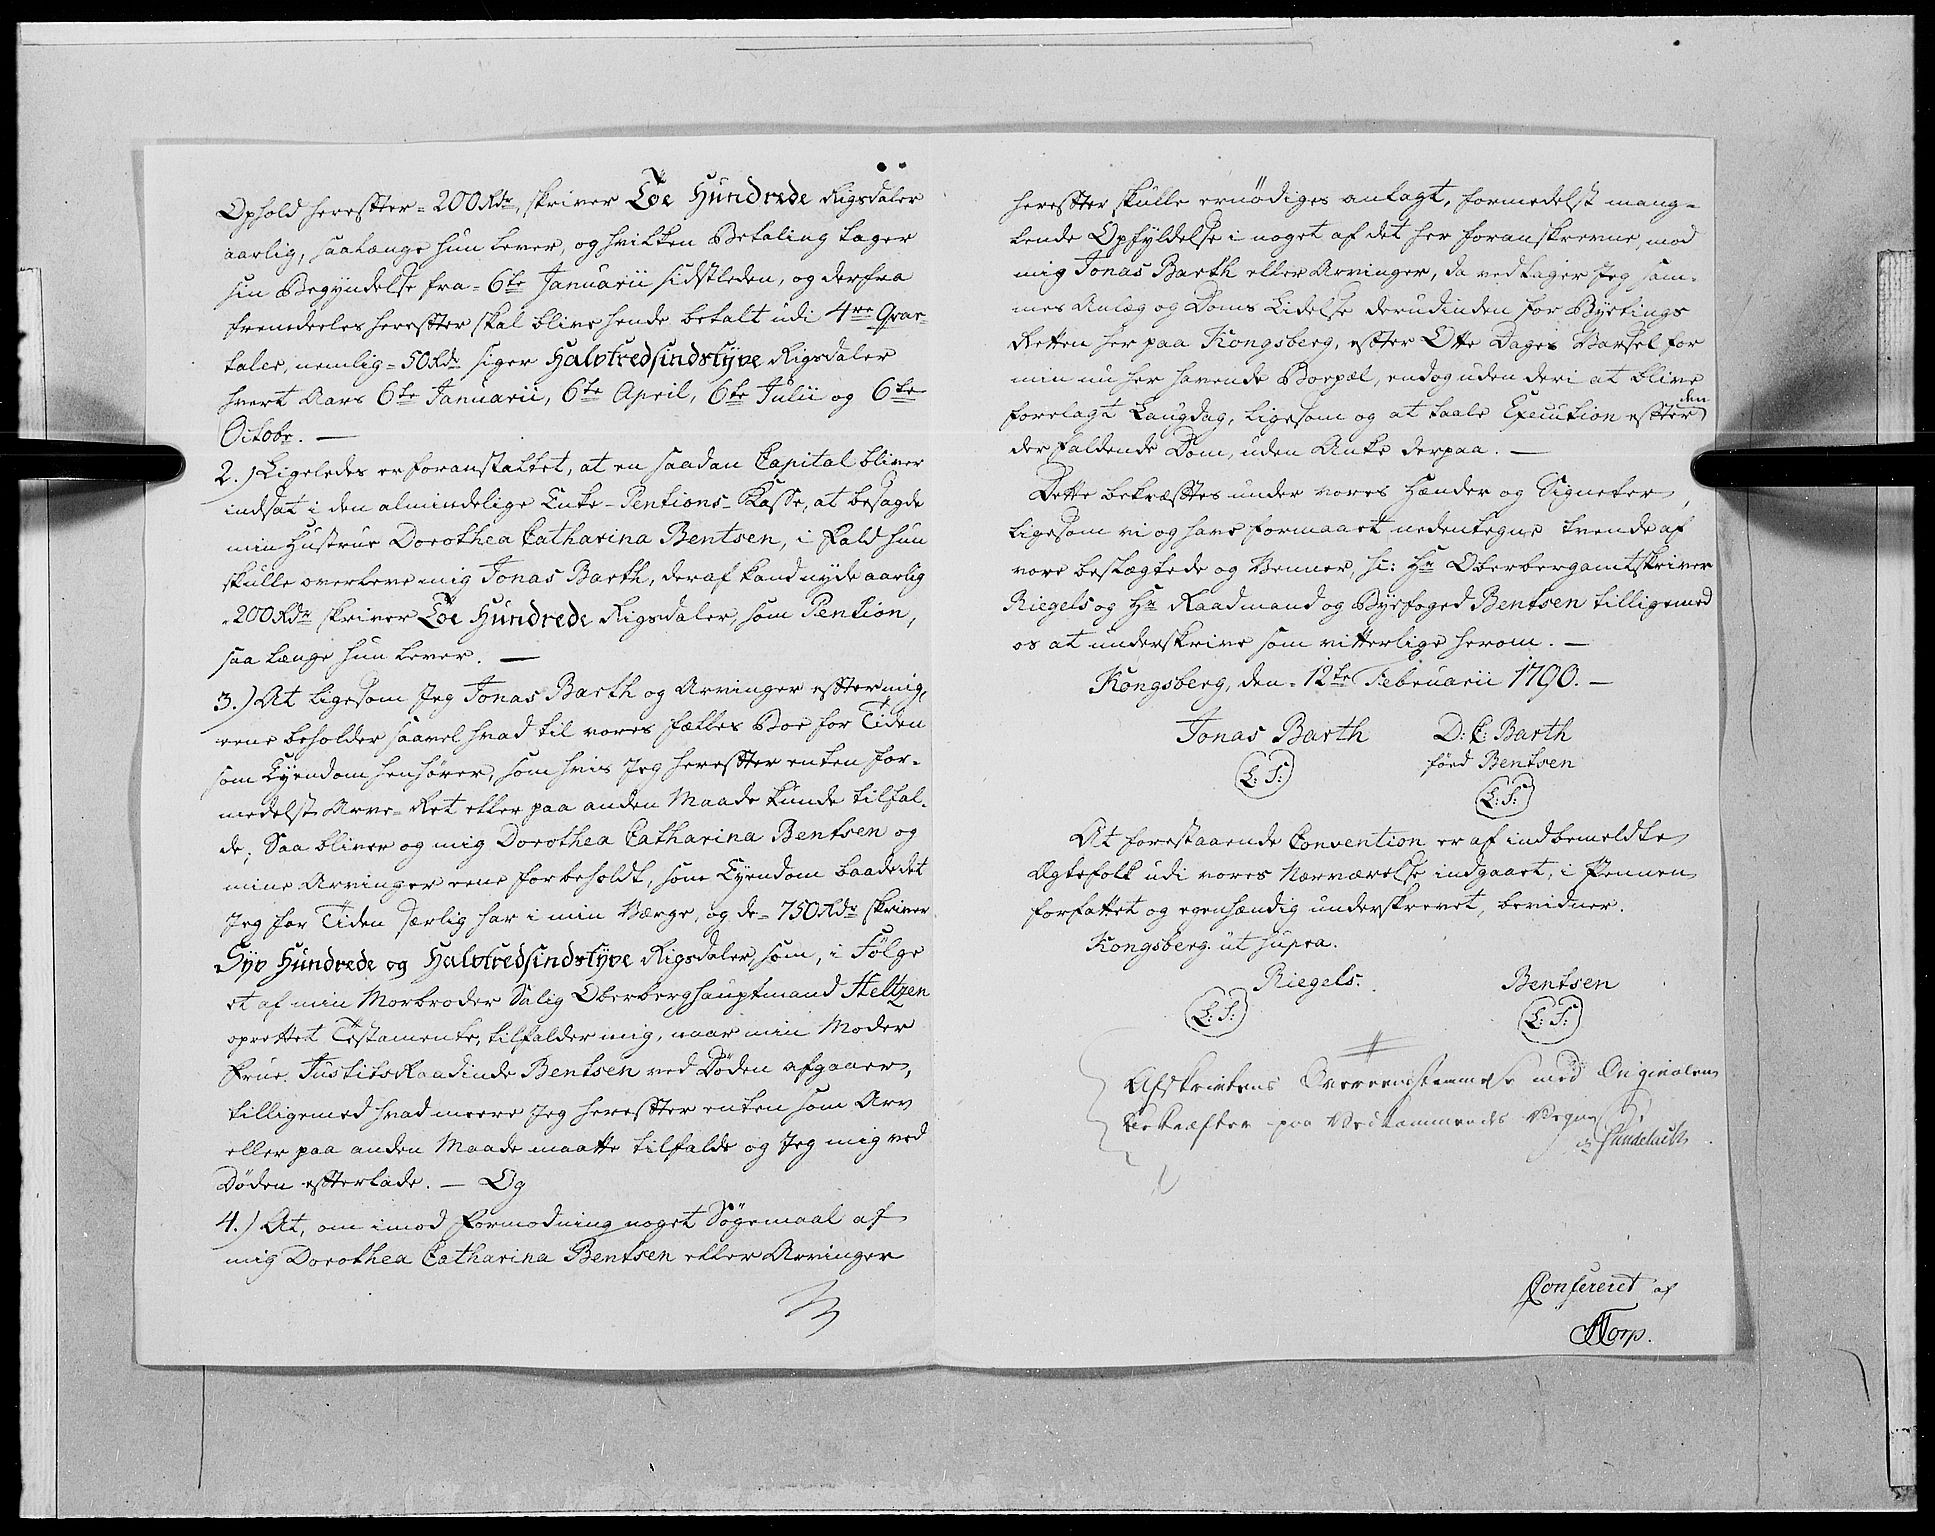 Ophold herefter = 200 Rdr, skriver Toe Hundrede Rigsdaler
aarlig, saalænge hun lever, og hvilken Betaling tager
sin Begyndelse fra = 6te Januarii sidstleden, og derfra
fremdeeles herefter skal blive hende betalt udi 4re Qvar-
taler, nemlig = 50 Rdr siger Halvtredsindstyve Rigsdaler
hvert Aars 6te Januarii, 6te April, 6te Julii og 6te
Octobr. —
2.) Ligeledes er foranstaltet, at en saadan Capital bliver
indsat i den almindelige Enke-Pentions-Kasse, at besagde
min Hustrue Dorothea Catharina Bentsen, i Fald hun
skulle overleve mig Jonas Barth, deraf kand nyde aarlig
= 200 Rdr skriver Toe Hundrede Rigsdaler, som Pention,
saa længe hun lever. —
3.) At ligesom Jeg Jonas Barth og Arvinger efter mig,
eene beholder saavel hvad til vores fælles Boe for Tiden
som Eyendom henhører, som hvis Jeg herefter enten for-
medelst Arve-Ret eller paa anden Maade kunde tilfal-
de; Saa bliver og mig Dorothea Catharina Bentsen og
mine Arvinger eene forbeholdt, som Eyendom baade det
Jeg for Tiden særlig har i min Værge, og de = 750 Rdr skriver
Syv Hundrede og Halvtredsindstyve Rigsdaler, som, i Følge
et af min Morbroder Salig Oberberghauptmand Heltzen
oprettet Testamente, tilfalder mig, naar min Moder
Frue Justitsraadinde Bentsen ved Døden afgaaer,
tilligemed hvad meere Jeg herefter enten som Arv
eller paa anden Maade maatte tilfalde og Jeg mig ved
Døden efterlade. — Og
4.) At, om imod Formodning noget Søgemaal af
mig Dorothea Catharina Bentsen eller Arvinger
herefter skulle ernødiges anlagt, formedelst mang-
lende Opfyldelse i noget af det her foranskrevne, mod
mig Jonas Barth eller Arvinger, da vedtager Jeg sam-
mes Anlæg og Doms Lidelse derudinden for Byetings
Retten her paa Kongsberg, efter Otte Dages Varsel for
min nu her havende Bopæl, endog uden deri at blive
forelagt Laugdag, ligesom og at taale Execution efter den
der faldende Dom, uden Anke derpaa. —
Dette bekræftes under vores Hænder og Signeter,
ligesom vi og have formaaet nedentegne tvende af
vore beslægtede og Venner, sc: Hr Oberbergamtskriver
Riegels og Hr Raadmand og Byefoged Bentsen tilligemed
os at underskrive som vitterlige herom. —
Kongsberg, den = 12te Februarii 1790. —
Jonas Barth D: C: Barth
født Bentsen
(L: S:) (L: S:)
At forestaaende Convention er af indbemeldte
Ægtefolk udi vores Nærværelse indgaaet, i Pennen
forfattet og egenhændig underskrevet, bevidner.
Kongsberg ut supra.
Riegels. Bentsen
(L: S:) (L: S:)
Afskriftens Overeenstemmelse med Originalen
bekræfter paa Vedkommendes Vegne
Confereret af
Torp.